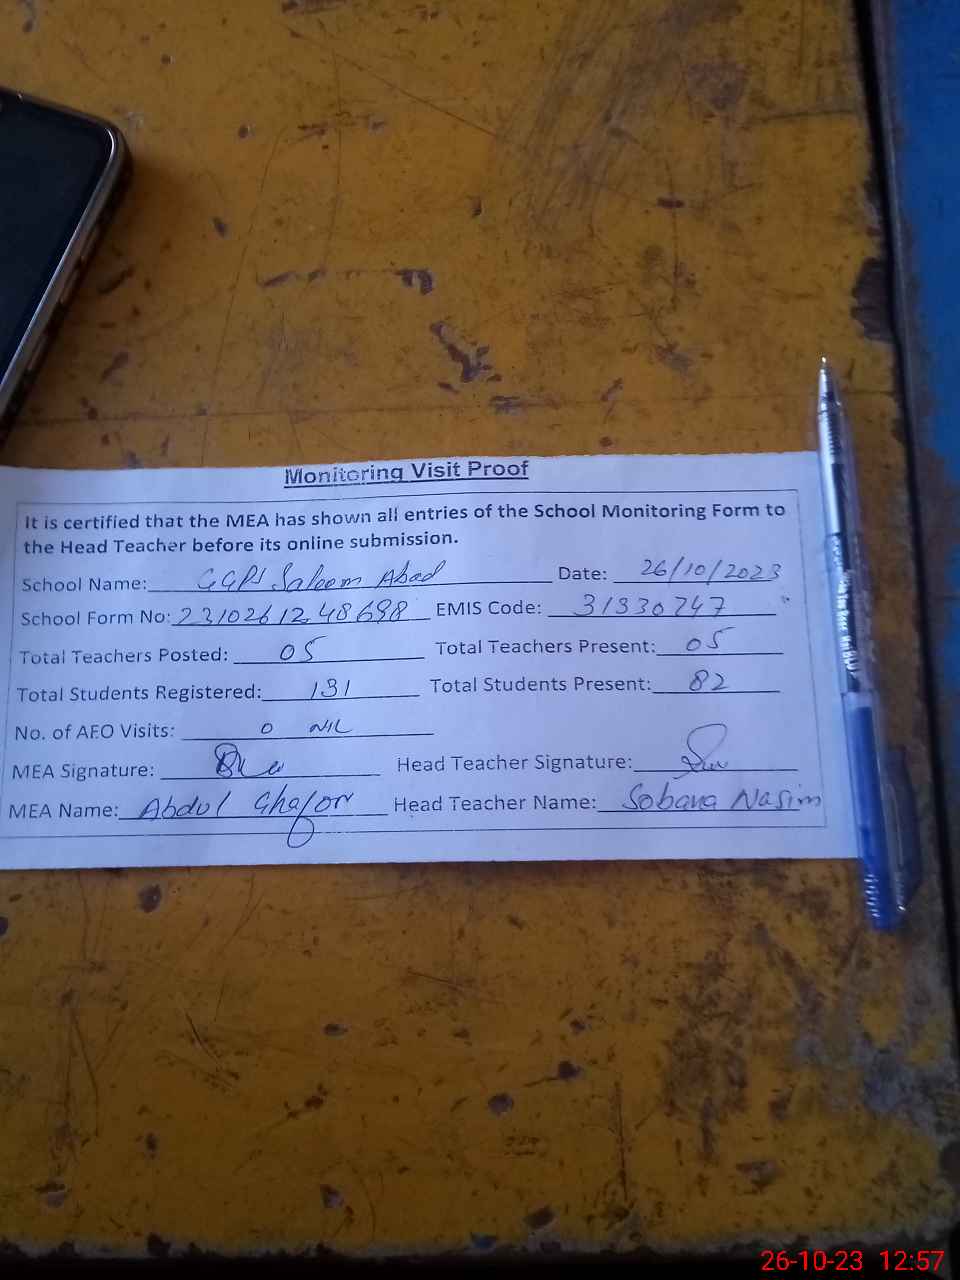 Monitoring Visit Proof
It is certified that the MEA has shown all entries of the School Monitoring Form to
the Head Teacher before its online submission.
School Name: GGPS Saleem Abad Date: 26/10/2023
School Form No: 2310261248698 EMIS Code: 31330747
Total Teachers Posted: 05 Total Teachers Present: 05
Total Students Registered: 131 Total Students Present: 82
No. of AEO Visits: 0 NIL
MEA Signature: Head Teacher Signature:
MEA Name: Abdul Ghafor Head Teacher Name: Sobana Nasim
26-10-23 12:57